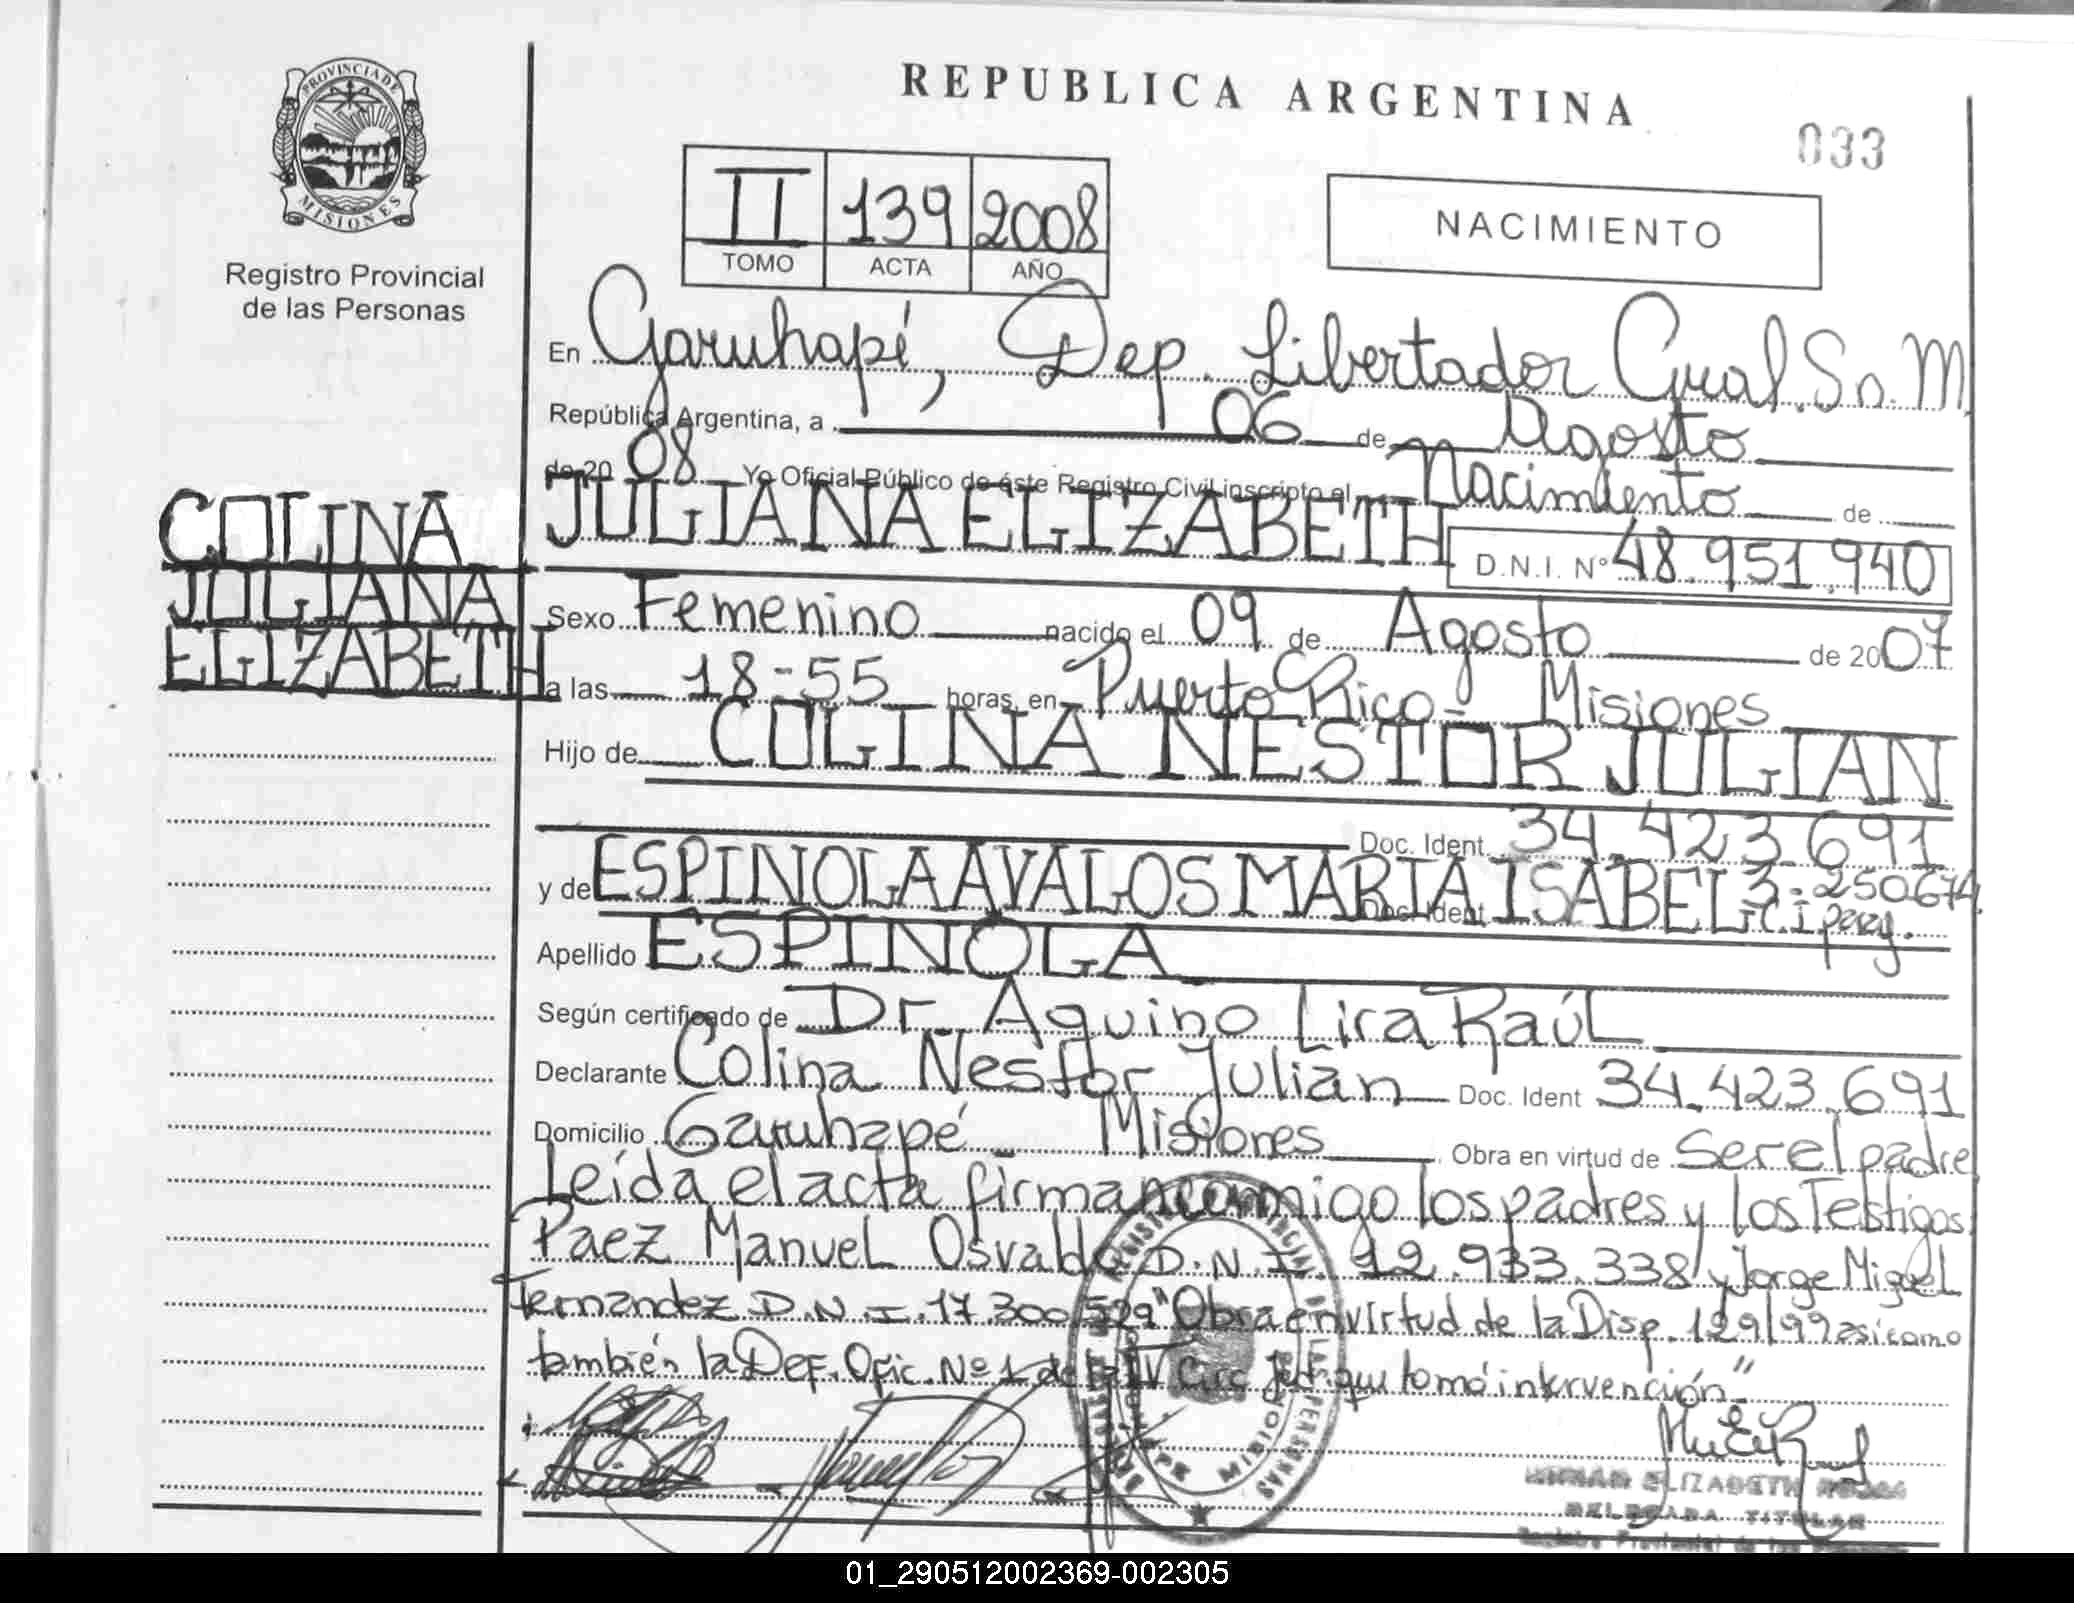 PROVINCIA DE
MISIONES
Registro Provincial
de las Personas
COLINA
JULIANA
ELIZABETH
REPUBLICA ARGENTINA
033
II 139 2008
TOMO ACTA AÑO
NACIMIENTO
En Garuhapé, Dep. Libertador Gral. Sn. M.
República Argentina, a 06 de Agosto
de 20 08 Yo Oficial Público de éste Registro Civil inscripto el Nacimiento de
JULIANA ELIZABETH D.N.I. Nº 48.951.940
Sexo Femenino nacido el 09 de Agosto de 2007
a las 18-55 horas, en Puerto Rico - Misiones
Hijo de COLINA NESTOR JULIAN
Doc. Ident. 34.423.691
y de ESPINOLA AVALOS MARIA ISABEL Doc. Ident 3.250.674
C.I.
Apellido ESPINOLA
Según certificado de Dr. Aquino Lira Raúl
Declarante Colina Nestor Julian Doc. Ident 34.423.691
Domicilio Garuhapé Misiones Obra en virtud de Ser el padre
Leída el acta firman conmigo los padres y los Testigos
Paez Manuel Osvaldo D.N.I. 12.933.338 y Jorge Miguel
Fernandez D.N.I. 17.300.529 "Obra en virtud de la Disp. 129/99 así como
también la Def. Ofic. Nº 1 de la IV Circ. Jud. que tomó intervención"
ELIZABETH
DELEGADA TITULAR
Registro Provincial de las Personas
01_290512002369-002305